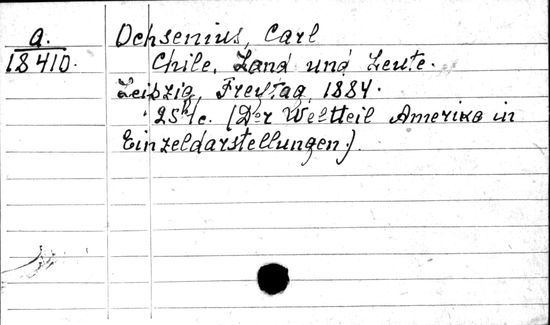 a. Ochsenius, Carl
18410. Chile. Land und Leute.
Leipzig, Freytag, 1884.
(Der Weltteil Amerika in
Einzeldarstellungen.)